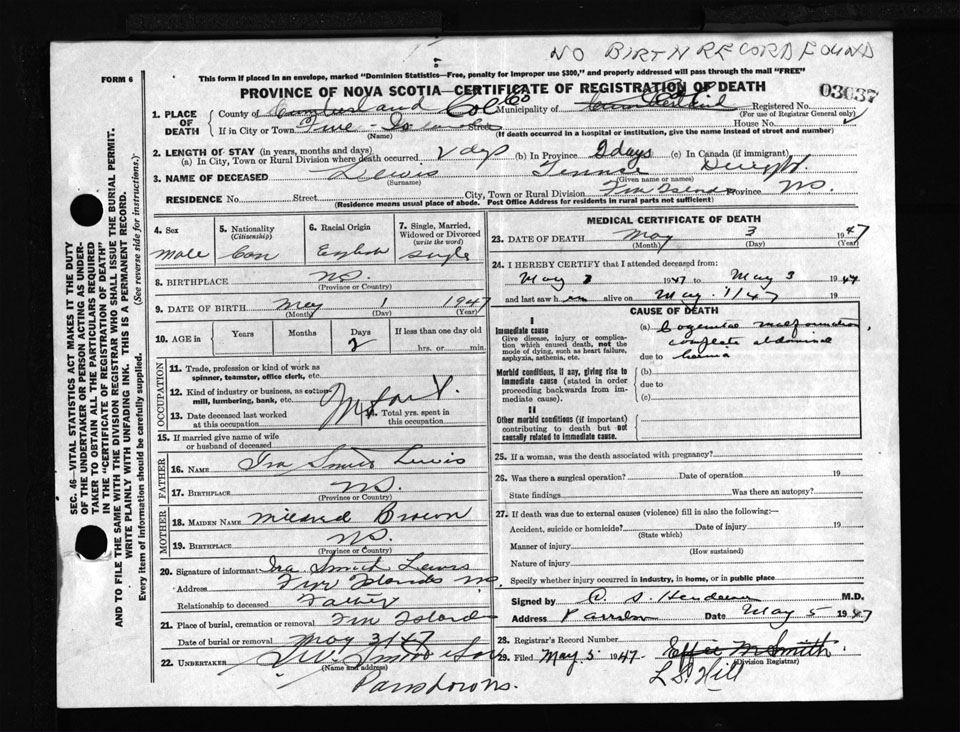 NO BIRTH RECORD FOUND
FORM 6
This form if placed in an envelope, marked "Dominion Statistics—Free, penalty for improper use $300," and properly addressed will pass through the mail "FREE"
PROVINCE OF NOVA SCOTIA—CERTIFICATE OF REGISTRATION OF DEATH
03037
1. PLACE OF DEATH
County of Cumberland Col Co Municipality of Registered No.
(For use of Registrar General only)
If in City or Town Five Islands Street House No.
(Name) (If death occurred in a hospital or institution, give the name instead of street and number)
2. LENGTH OF STAY (in years, months and days)
(a) In City, Town or Rural Division where death occurred 2 days (b) In Province 2 days (c) In Canada (if immigrant)
3. NAME OF DECEASED Lewis Dwight
(Surname) (Given name or names)
RESIDENCE No. Street City, Town or Rural Division Five Islands Province N.S.
(Residence means usual place of abode. Post Office Address for residents in rural parts not sufficient)
4. Sex
Male
5. Nationality
(Citizenship)
Can
6. Racial Origin
English
7. Single, Married, Widowed or Divorced
(write the word)
Single
8. BIRTHPLACE N.S.
(Province or Country)
9. DATE OF BIRTH May 1 1947
(Month) (Day) (Year)
10. AGE in Years Months Days If less than one day old
2 hrs. or min.
OCCUPATION
11. Trade, profession or kind of work as spinner, teamster, office clerk, etc.
12. Kind of industry or business, as cotton-mill, lumbering, bank, etc.
Infant
13. Date deceased last worked at this occupation
14. Total yrs. spent in this occupation
15. If married give name of wife or husband of deceased
FATHER
16. NAME Ira Smith Lewis
17. BIRTHPLACE N.S.
(Province or Country)
MOTHER
18. MAIDEN NAME Mildred Brown
19. BIRTHPLACE N.S.
(Province or Country)
20. Signature of informant Ira Smith Lewis
Address Five Islands N.S.
Relationship to deceased Father
21. Place of burial, cremation or removal Five Islands
Date of burial or removal May 3/47
22. UNDERTAKER
(Name and address)
Parrsboro N.S.
MEDICAL CERTIFICATE OF DEATH
23. DATE OF DEATH May 3 1947
(Month) (Day) (Year)
24. I HEREBY CERTIFY that I attended deceased from:
May 1947 to May 3 1947
and last saw him alive on May 1/47 19
CAUSE OF DEATH
I
Immediate cause
Give disease, injury or complication which caused death, not the mode of dying, such as heart failure, asphyxia, asthenia, etc.
(a) Congenital malformation,
complete abdominal
due to hernia
Morbid conditions, if any, giving rise to immediate cause (stated in order proceeding backwards from immediate cause).
(b)
due to
(c)
II
Other morbid conditions (if important) contributing to death but not causally related to immediate cause.
25. If a woman, was the death associated with pregnancy?
26. Was there a surgical operation? Date of operation 19
State findings Was there an autopsy?
27. If death was due to external causes (violence) fill in also the following:—
Accident, suicide or homicide? Date of injury 19
(State which)
Manner of injury
(How sustained)
Nature of injury
Specify whether injury occurred in industry, in home, or in public place
Signed by M.D.
Address Parrsboro Date May 5 1947
28. Registrar's Record Number
29. Filed May 5 1947 Effie M Smith
(Division Registrar)
L S Hill
SEC. 46—VITAL STATISTICS ACT MAKES IT THE DUTY
OF THE UNDERTAKER OR PERSON ACTING AS UNDERTAKER TO OBTAIN ALL THE PARTICULARS REQUIRED
IN THE "CERTIFICATE OF REGISTRATION OF DEATH"
AND TO FILE THE SAME WITH THE DIVISION REGISTRAR WHO SHALL ISSUE THE BURIAL PERMIT.
WRITE PLAINLY WITH UNFADING INK. THIS IS A PERMANENT RECORD.
Every item of information should be carefully supplied. (See reverse side for instructions.)